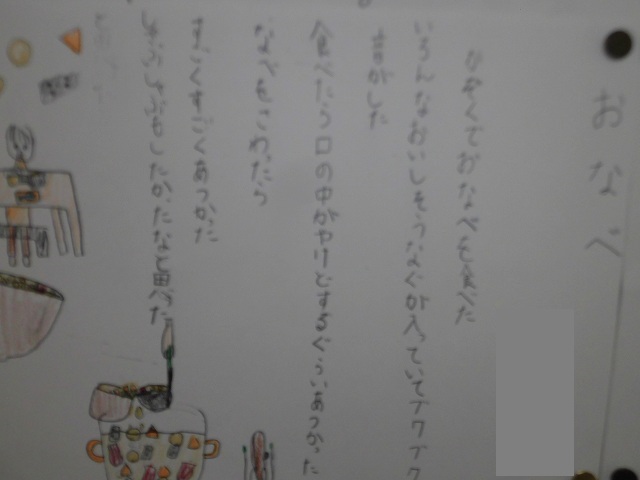 おなべ
かぞくでおなべを食べた
いろんなおいしそうなぐが入っていてブクブク
音がした
食べたら口の中がヤケどするぐらいあつかった
なべをさわったら
すごくすごくあつかた
しゃぶしゃぶもしたかたなと思った